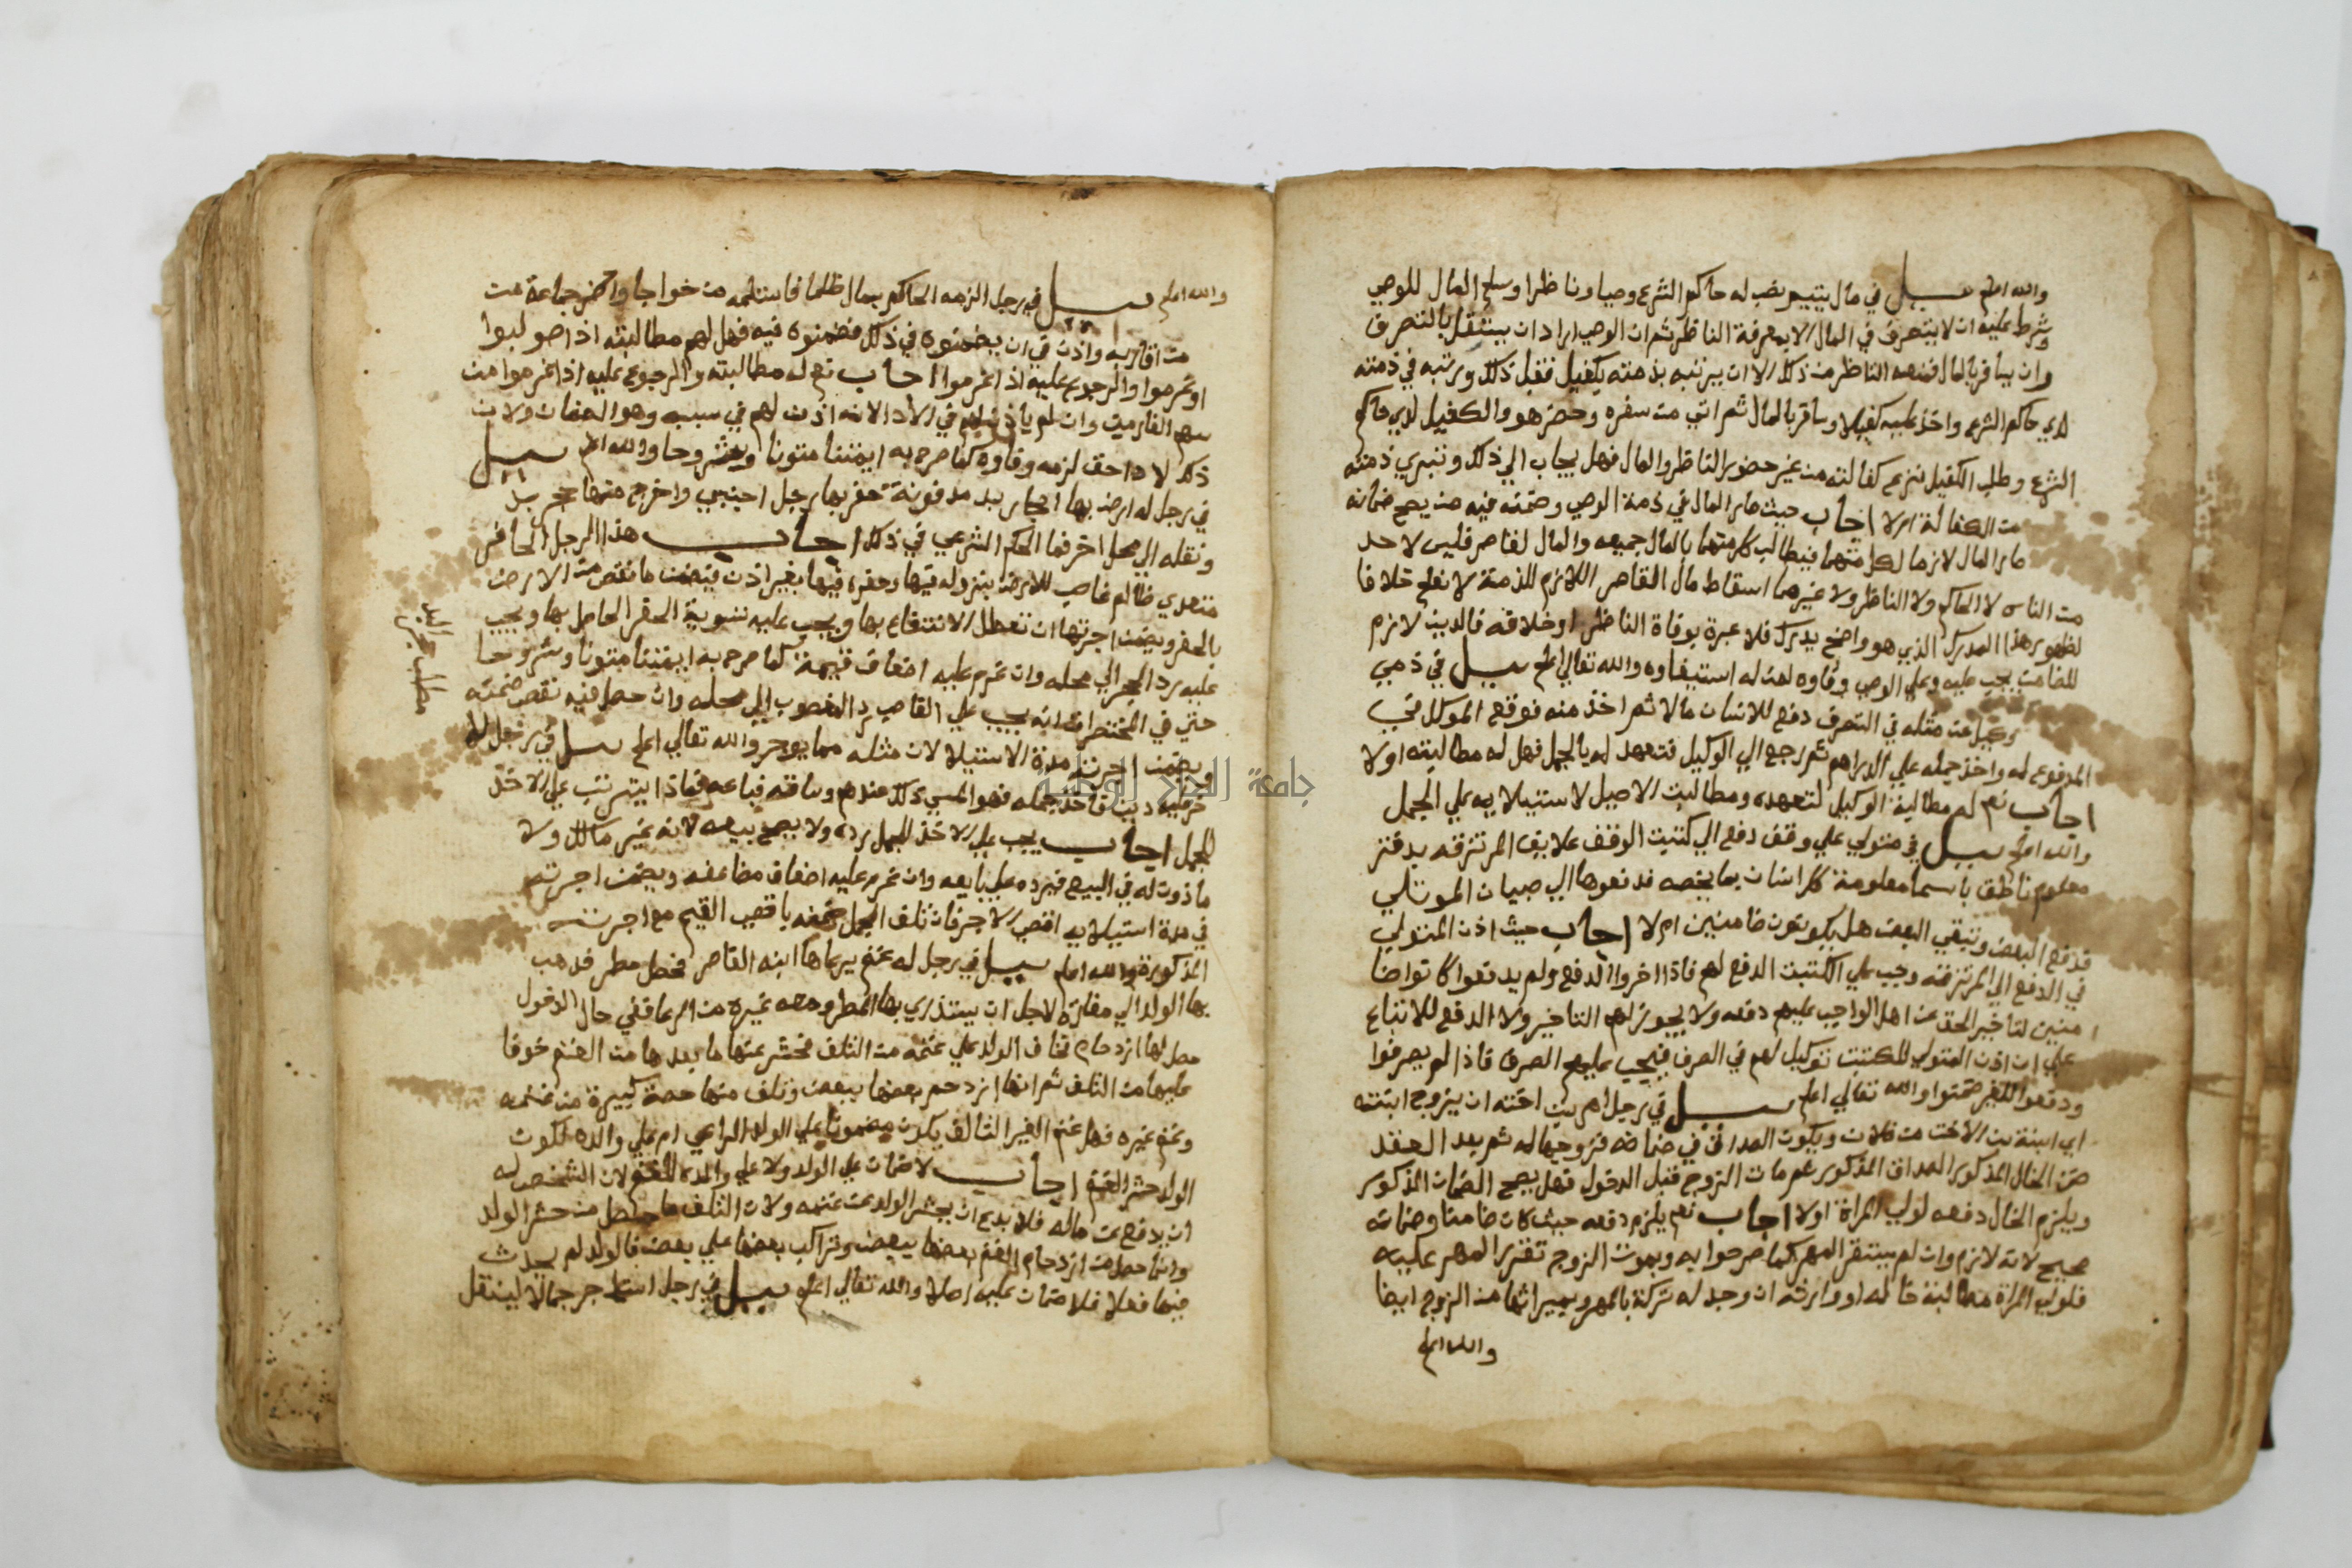 والله اعلم سيل في مال يتيم نصب له حاكم الشرع وصيا وناظرا وسلم المال للوصي
وشرط عليه ان لا يتصرف في المال الا بمعرفة الناظر ثم ان الوصي اراد ان يستقل بالتصرف
وان يسافر بالمال فمنعه الناظر من ذلك الا ان يرتبه بذمته بكفيل فقبل ذلك ورتبه في ذمته
لدي حاكم الشرع واخذ عليه كفيلا وسافر بالمال ثم اتي من سفره وحضر هو والكفيل لدي حاكم
الشرع وطلب الكفيل نزع كفالته من غير حضور الناظر والمال فهل يجاب الي ذلك وتبري ذمته
من الكفالة ام لا اجاب حيث صار المال في ذمة الوصي وضمنه فيه من يصح ضمانه
صار المال لازما لكل منهما فيطالب كل منهما بالمال جميعه والمال لقاصر فليس لاحد
من الناس لا الحاكم ولا الناظر ولا غيرهما اسقاط مال القاصر اللازم للذمة لا نعلم خلافا
لظهور هذا المدرك الذي هو واضح يدرك فلا عبرة بوفاة الناظر او خلافه فالدين لازم
للضامن يجب عليه وعلي الوصي وفاوه لمن له استيفاوه والله تعالي اعلم سيل في ذمي
وكيل عن مثله في التصرف دفع لانسان مالا ثم اخذ منه فوقع الموكل في
المدفوع له واخذ جمله علي الدراهم ثم رجع الي الوكيل فتعهد له بالجمل فهل له مطالبته اولا
اجاب نعم له مطالبة الوكيل لتعهده ومطالبة الاصيل لاستيلايه علي الجمل
والله اعلم سيل في متولي علي وقف دفع الي كتبت الوقف علايف المرتزقه بدفتر
معلوم ناطق باسما معلومة كل انسان بما يخصه فدفعوها الي صبيان المتولي
فدفع البعض وتبقي البعض هل يكونون ضامنين ام لا اجاب حيث اذن المتولي
في الدفع الي المرتزقه وجب علي الكتبت الدفع لهم فاذا اخروا الدفع ولم يدفعوا كانوا ضا
منين لتاخير الحق عن اهل الواجب عليهم دفعه ولا يجوز لهم التاخير ولا الدفع للاتباع
علي ان اذن المتولي للكتبت توكيل لهم في الصرف فيجب عليهم الصرف فاذا لم يصرفوا
ودفعوا للغير ضمنوا والله تعالي اعلم سيل في رجل امر بن اخته ان يزوج ابنته
اي ابنة بن الاخت من فلان ويكون الصداق في ضمانه فزوجها له ثم بعد العقد
ضمن الخال المذكور الصداق المذكور ثم مات الزوج قبل الدخول فهل يصح الضمان المذكور
ويلزم الخال دفعه لولي المراة اولا اجاب نعم يلزم دفعه حيث كان ضامنا وضمانه
صحيح لانه لازم وان لم يستقر المهر كما صرحوا به وبموت الزوج تقرر المهر عليه
فلولي المراة مطالبة خاله او وارثه ان وجد له تركة بالمهر وبميراثها من الزوج ايضا
والله اعلم
والله اعلم سيل في رجل الزمه الحاكم بمال ظلما فاستلمه من خواجا واحضر جماعة من
من اقاربه واذن في ان يضمنوه في ذلك فضمنوه فيه فهل لهم مطالبته اذا طولبوا
او غرموا والرجوع عليه اذا غرموا اجاب نعم له مطالبته والرجوع عليه اذا غرموا من
سهم الغارمين وان لم ياذن لهم في الادا لانه اذن لهم في سببه وهو الضمان ولان
ذلك لادا حق لزمه وفاوه كما صرح به ايمتنا متونا وشروحا والله اعلم سيل
في رجل له ارض بها احجار بد مدفونة حفر بها رجل اجنبي واخرج منها حجر بد
ونقله الي محل اخر فما الحكم الشرعي في ذلك اجاب هذا الرجل الحافر
متعدي ظالم غاصب للارض بنزوله فيها وحفره فيها بغير اذن فيضمن ما نقص من الارض
بالحفر ويضمن اجرتها ان تعطل الانتفاع بها ويجب عليه تسوية الحفر الحاصل بها ويجب
عليه رد الحجر الي محله وان غرم عليه اضعاف قيمة كما صرح به ايمتنا متونا وشروحا
حتي في المختصرات انه يجب علي الغاصب رد المغصوب الي محله وان حصل فيه نقص ضمنه
ويضمن اجرته مدة الاستيلا لان مثله مما يوجر والله تعالي اعلم سيل في رجل له
حرفيه دين فاخذ جمله فهو المسمي ذلك عندهم وساقه فباعه فماذا يترتب علي الاخذ
للجمل اجاب يجب علي الاخذ للجمل رده ولا يصح بيعه لانه غير مالك ولا
ماذون له في البيع فيرده علي بايعه وان غرم عليه اضعاف مضاعفه ويضمن اجرته
في مدة استيلايه اقصي الاجر فان تلف الجمل ضمنه باقصي القيم مع اجرته
المذكورة والله اعلم سيل في رجل له غنم يرعاها ابنه القاصر فحصل مطر فدهب
بها الولد الي مغارة لاجل ان يستذري بها المطر ومعه غيره من الرعا ففي حال الدخول
حصل لها ازدحام فخاف الولد علي غنمه من التلف فحشر عنها ما بعدها من الغنم خوفا
عليها من التلف ثم انها ازدحم بعضها ببعض وتلف منها حصة كبيرة من غنمه
وغنم غيره فهل غنم الغير التالف يكون مضمونا علي الولد الراعي ام علي والده لكون
الولد حشر الغنم اجاب لا ضمان علي الولد ولا علي والده للغنم لان الشخص له
ان يدفع عن ماله فلا بدع ان يحشر الولد عن غنمه ولان التلف ما حصل من حشر الولد
وانما حصل من ازدحام الغنم بعضها ببعض وتراكب بعضها علي بعض فالولد لم يحدث
فيها فعلا فلا ضمان عليه اصلا والله تعالي اعلم سيل في رجل استاجر جمالا لينقل
مطلب حجر
البد
جامعة النجاح الوطنية